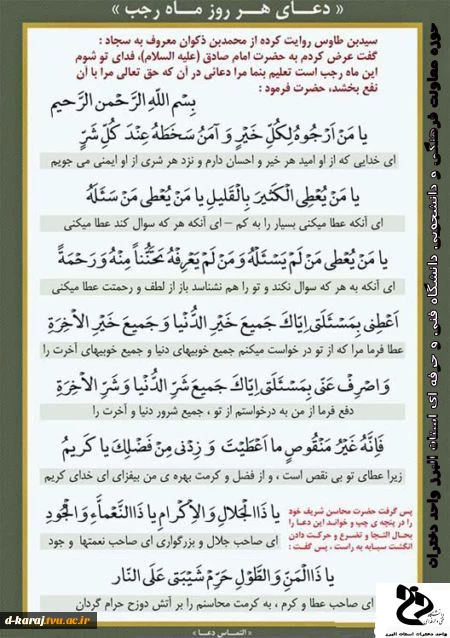 « دعای هر روز ماه رجب »
سیدبن طاوس روایت کرده از محمدبن ذکوان معروف به سجاد :
گفت عرض کردم به حضرت امام صادق (علیه السلام)، فدای تو شوم
این ماه رجب است تعلیم بنما مرا دعائی در آن که حق تعالی مرا با آن
نفع بخشد، حضرت فرمود :
بِسْمِ اللهِ الرَّحْمنِ الرَّحیمِ
یا مَنْ اَرْجُوهُ لِکُلِّ خَیْرٍ وَ آمَنُ سَخَطَهُ عِنْدَ کُلِّ شَرٍّ
ای خدایی که از او امید هر خیر و احسان دارم و نزد هر شری از او ایمنی می جویم
یا مَنْ یُعْطِی الْکَثیرَ بِالْقَلیلِ یا مَنْ یُعْطی مَنْ سَئَلَهُ
ای آنکه عطا میکنی بسیار را به کم – ای آنکه هر که سوال کند عطا میکنی
یا مَنْ یُعْطی مَنْ لَمْ یَسْئَلْهُ وَ مَنْ لَمْ یَعْرِفْهُ تَحَنُّناً مِنْهُ وَ رَحْمَةً
ای آنکه به هر که سوال نکند و تو را هم نشناسد باز از لطف و رحمتت عطا میکنی
اَعْطِنی بِمَسْئَلَتی اِیّاکَ جَمیعَ خَیْرِ الدُّنْیا وَ جَمیعَ خَیْرِ الْاخِرَةِ
عطا فرما مرا که از تو در خواست میکنم جمیع خوبیهای دنیا و جمیع خوبیهای آخرت را
وَ اصْرِفْ عَنّی بِمَسْئَلَتی اِیّاکَ جَمیعَ شَرِّ الدُّنْیا وَ شَرِّ الْاخِرَةِ
دفع فرما از من به درخواستم از تو ، جمیع شرور دنیا و آخرت را
فَاِنَّهُ غَیْرُ مَنْقُوصٍ ما اَعْطَیْتَ وَ زِدْنی مِنْ فَضْلِکَ یا کَریمُ
زیرا عطای تو بی نقص است ، و از فضل و کرمت بهره ی من بیفزای ای خدای کریم
پس گرفت حضرت محاسن شریف خود
را در پنجه ی چپ و خواند این دعا را
بحال التجا و تضرع و حرکت دادن
انگشت سبابه به راست ، پس گفت :
یا ذَا الْجَلالِ وَ الْاِکْرامِ یا ذَا النَّعْماءِ وَ الْجُودِ
ای صاحب جلال و بزرگواری ای صاحب نعمتها و جود
یا ذَا الْمَنِّ وَ الطَّوْلِ حَرِّمْ شَیْبَتی عَلَی النّارِ
ای صاحب عطا و کرم ، به کرمت محاسنم را بر آتش دوزخ حرام گردان
« التماس دعا »
حوزه معاونت فرهنگی و دانشجویی دانشگاه فنی و حرفه ای استان البرز واحد دختران
واحد دختران استان البرز
d-karaj.tvu.ac.ir